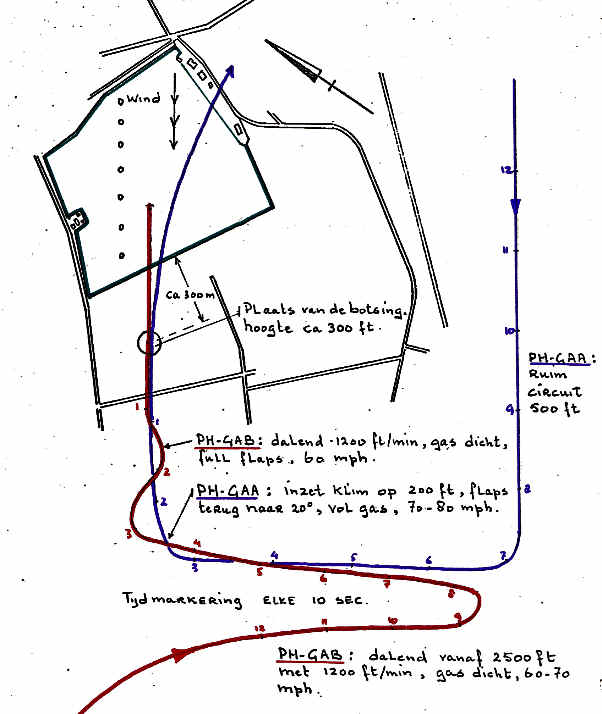 Wind
ca 300m
Plaats van de botsing.
hoogte ca 300 ft.
12
11
10
9
8
7
6
5
4
3
2
1
PH-GAA:
Ruim
circuit
500 ft
PH-GAB: dalend -1200 ft/min, gas dicht,
full flaps, 60 mph.
PH-GAA: inzet klim op 200 ft, flaps
terug naar 20°, vol gas, 70-80 mph.
1
2
3
4
5
6
7
8
9
10
11
12
Tijdmarkering elke 10 sec.
PH-GAB: dalend vanaf 2500 ft
met 1200 ft/min, gas dicht, 60-70
mph.